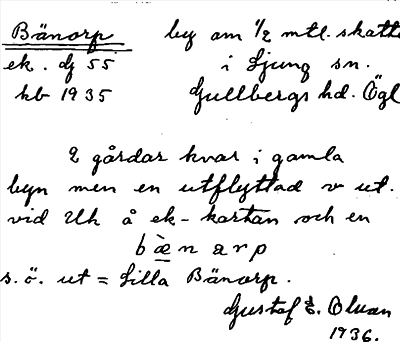 Bänorp by om 1/2 mtl. skatte
ek. dj 55 i Ljung sn.
kb 1935 Gullbergs hd. Ögl
2 gårdar kvar i gamla
byn men en utflyttad v ut.
vid Uh å ek-kartan och en
bænarp
s.ö. ut = Lilla Bänorp.
Gustaf E. Olson
1936.